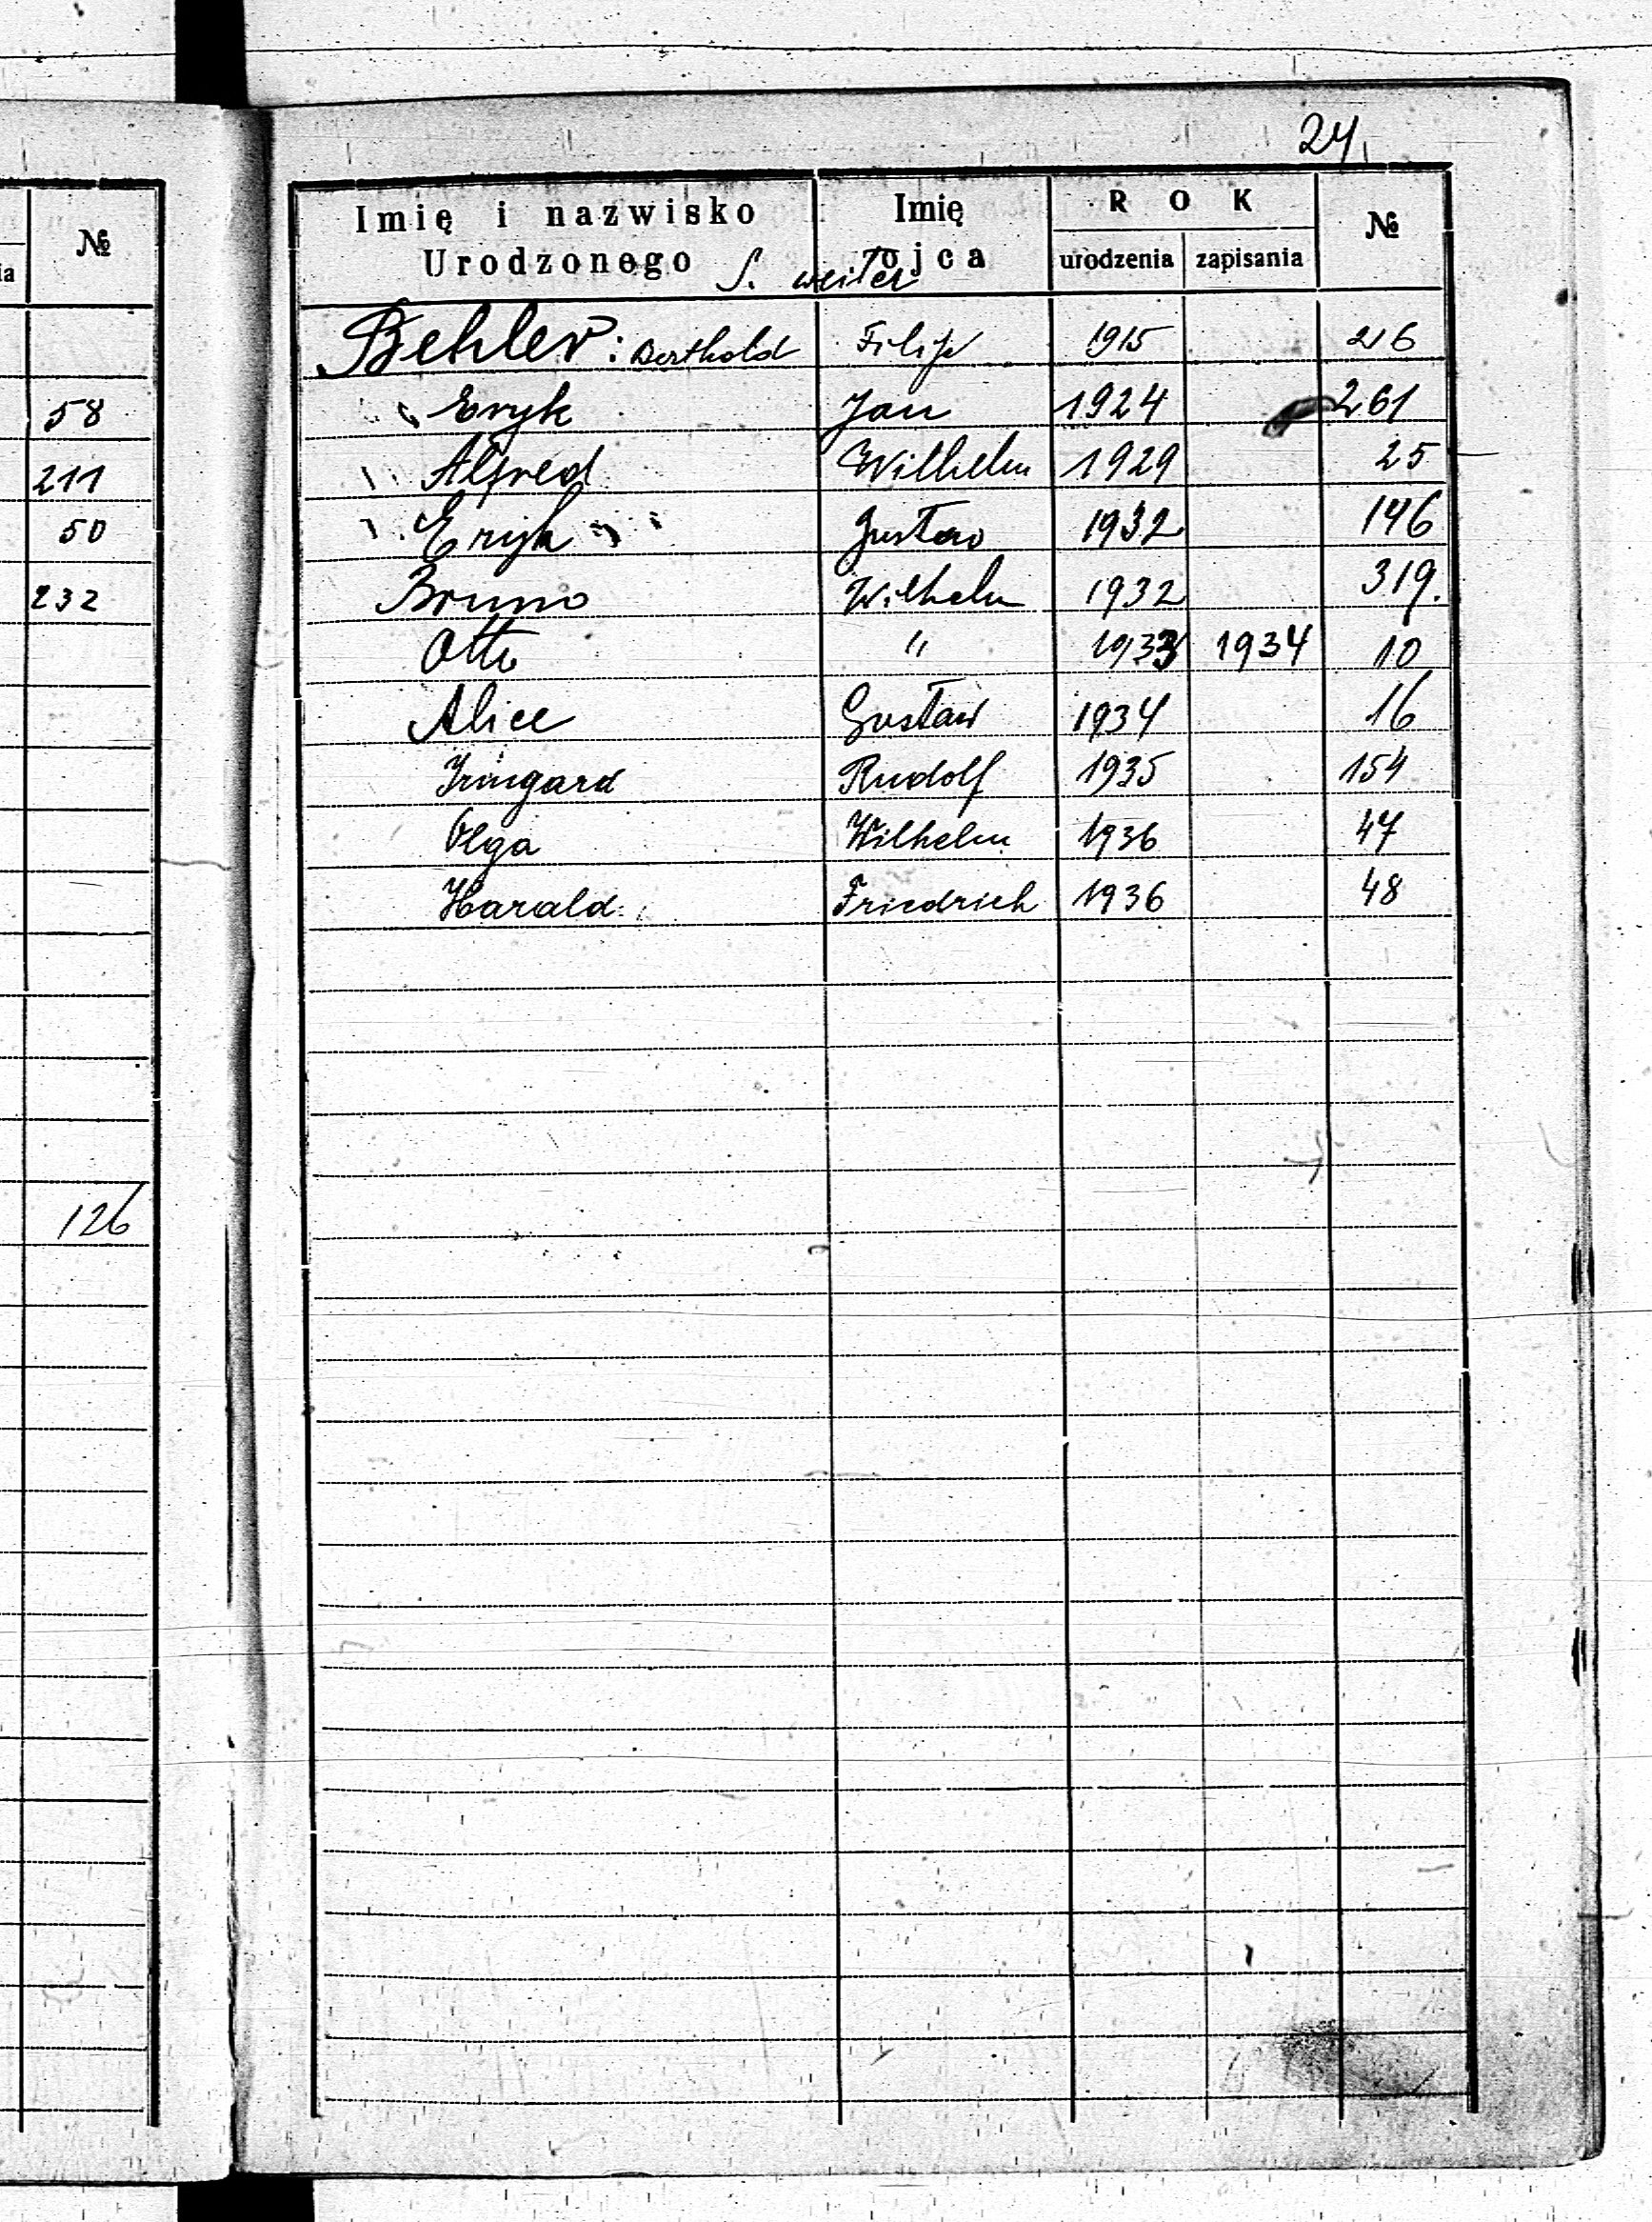 ia
№
58
211
50
232
126
24
Imię i nazwisko Urodzonego
Imię ojca
R O K
urodzenia zapisania
№
S. weiter
Behler: Berthold Filip 1915 216
" Eryk Jan 1924 261
" Alfred Wilhelm 1929 25
" Eryk " Gustaw 1932 146
Bruno Wilhelm 1932 319.
Otto " 1933 1934 10
Alice Gustaw 1934 16
Irmgard Rudolf 1935 154
Olga Wilhelm 1936 47
Harald Friedrich 1936 48